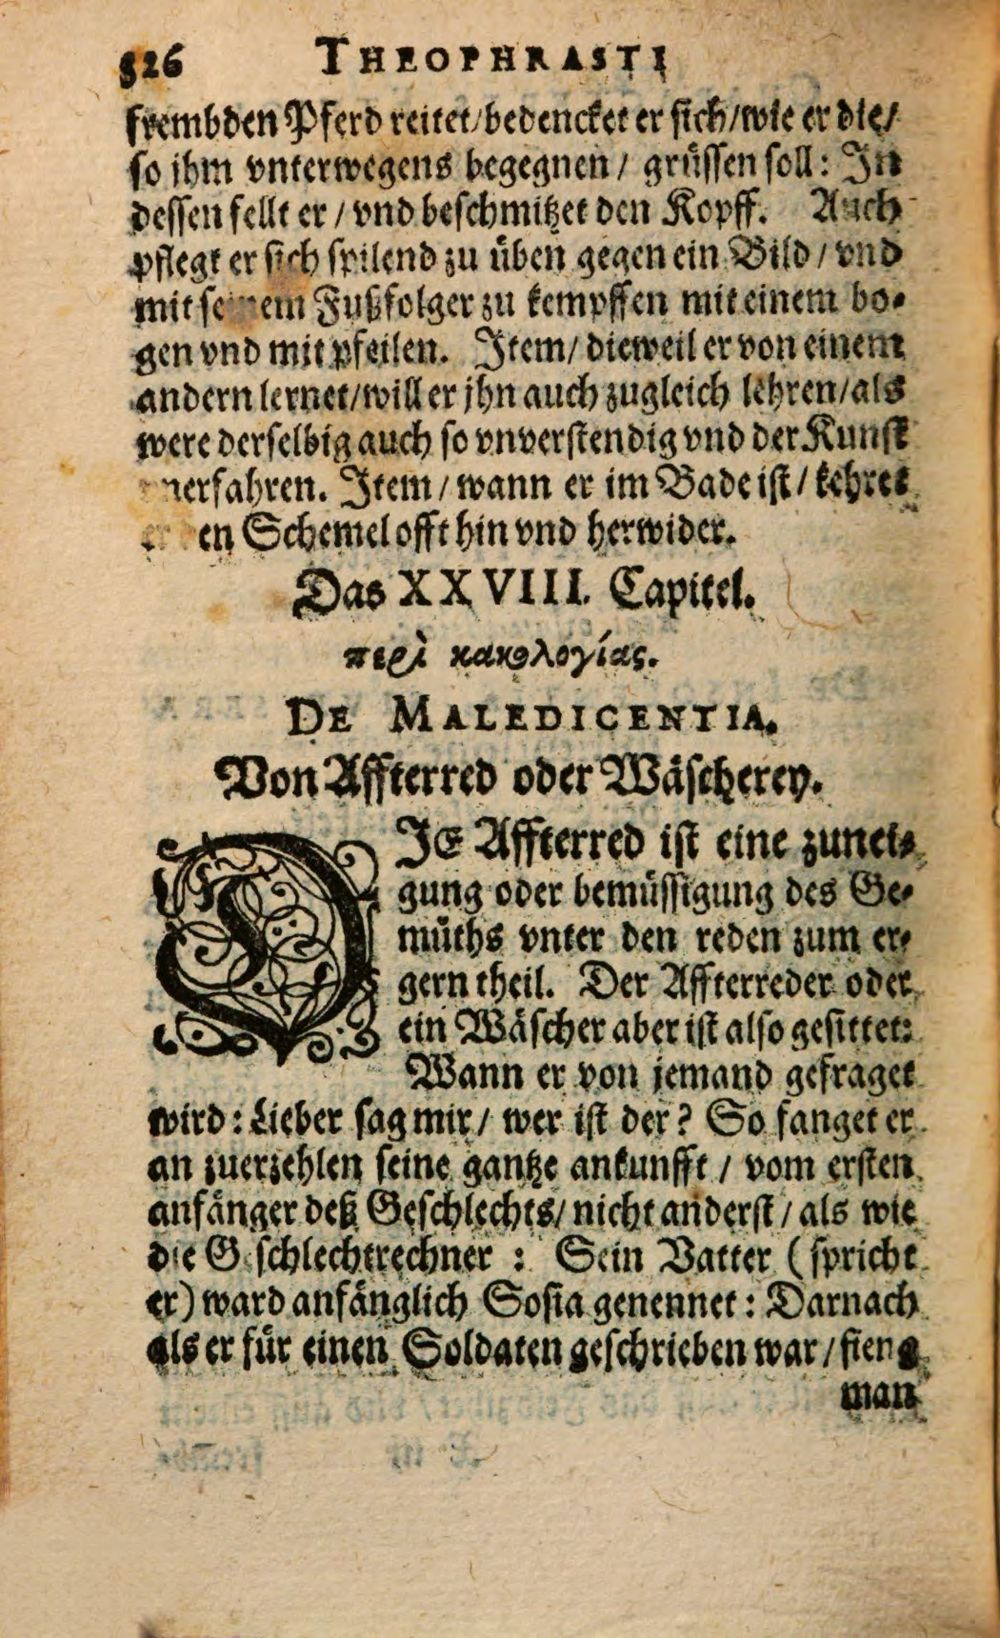 326 THEOPHRASTI
frembden Pferd reitet/bedencket er sich/wie er die/
so ihm vnterwegens begegnen/ grüssen soll: In
dessen fellt er/ vnd beschmitzet den Kopff. Auch
pflegt er sich spilend zu üben gegen ein Bild/ vnd
mit seinem Fußfolger zu kempffen mit einem bo-
gen vnd mit pfeilen. Item/ dieweil er von einem
andern lernet/will er jhn auch zugleich lehren/als
were derselbig auch so vnverstendig vnd der Kunst
nerfahren. Item/ wann er im Bade ist/ kehret
en Schemel offt hin vnd herwider.
Das XXVIII. Capitel.
περὶ κακολογίας.
DE MALEDICENTIA.
Von Affterred oder Wäscherey.
DIE Affterred ist eine zunei-
gung oder bemüssigung des Ge-
müths vnter den reden zum er-
gern theil. Der Affterreder oder
ein Wäscher aber ist also gesittet:
Wann er von jemand gefraget
wird: Lieber sag mir/ wer ist der? So fanget er
an zuerzehlen seine gantze ankunfft/ vom ersten
anfänger deß Geschlechts/ nicht anderst/ als wie
die Gschlechtrechner: Sein Vatter (spricht
er) ward anfänglich Sosia genennet: Darnach
als er für einen Soldaten geschrieben war/ fieng
man